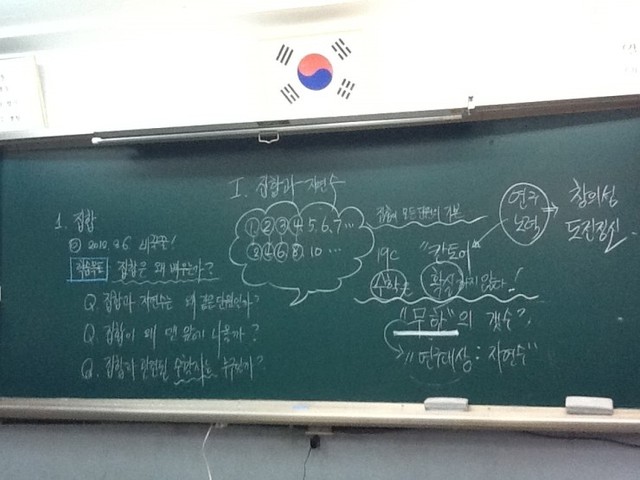 I. 집합과 자연수
1. 집합
집합은 왜 배우는가?
Q. 집합과 자연수는 왜 같은 단원인가?
Q. 집합이 왜 맨 앞에 나올까?
Q. 집합과 관련된 수학자는 누구인가?
① ② ③ ④ 5. 6. 7. ...
② ④ ⑥ ⑧ 10 ...
집합이 모든 단원의 기본
19C "칸토어"
수학은 확실하지 않다!
"무한"의 갯수?
"연구대상: 자연수"
연구
노력
창의성
도전정신